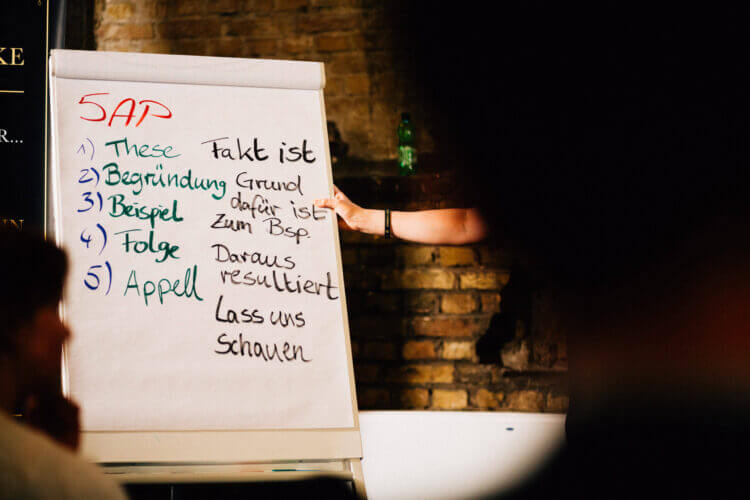 KE
R...
5AP
1) These Fakt ist
2) Begründung Grund dafür ist
3) Beispiel Zum Bsp.
4) Folge Daraus resultiert
5) Appell Lass uns schauen